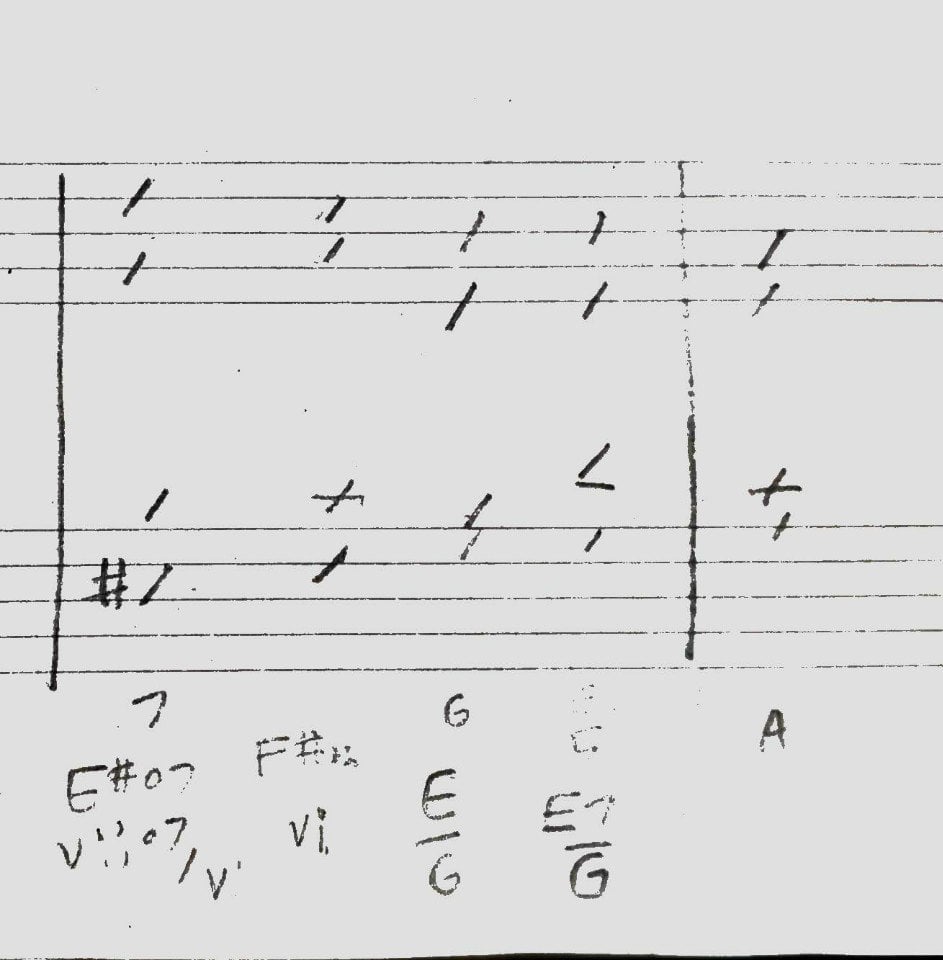 #
7 G A
E#o7 F#m E/G E7/G
vii°7/vi vi